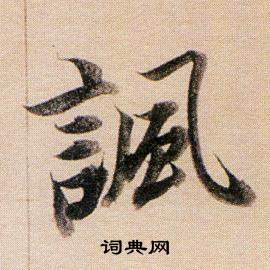 諷
词典网